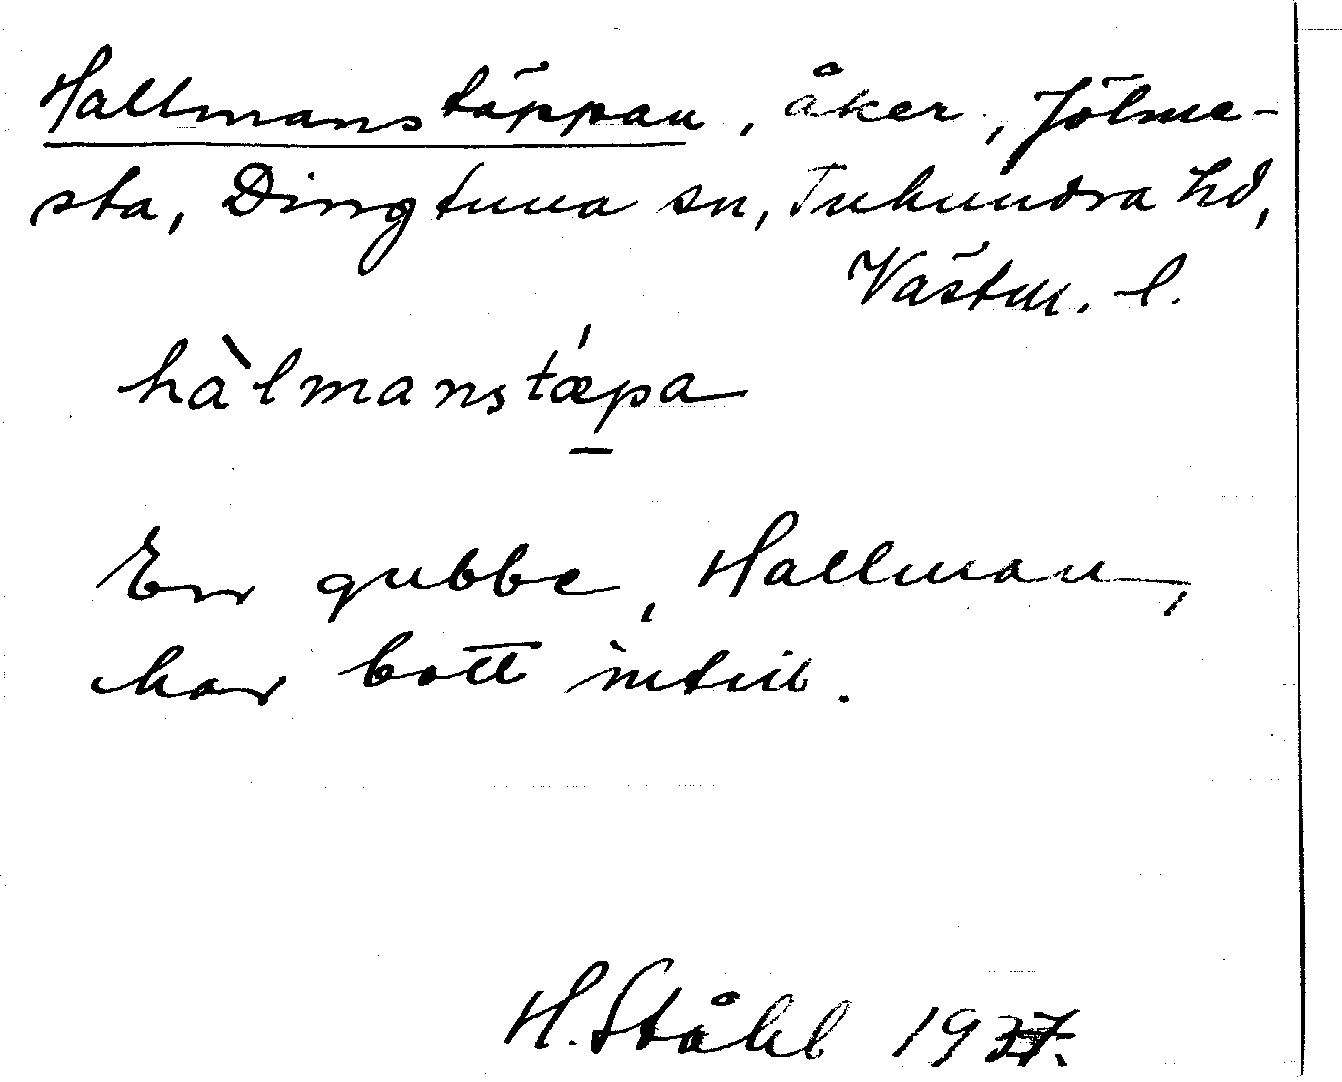 Hallmanstäppan, åker, Jölme-
sta, Dingtuna sn, Tuhundra hd,
Västm. l.
hàlmanstǽpa
En gubbe, Hallman,
har bott intill.
H. Ståhl 1937.